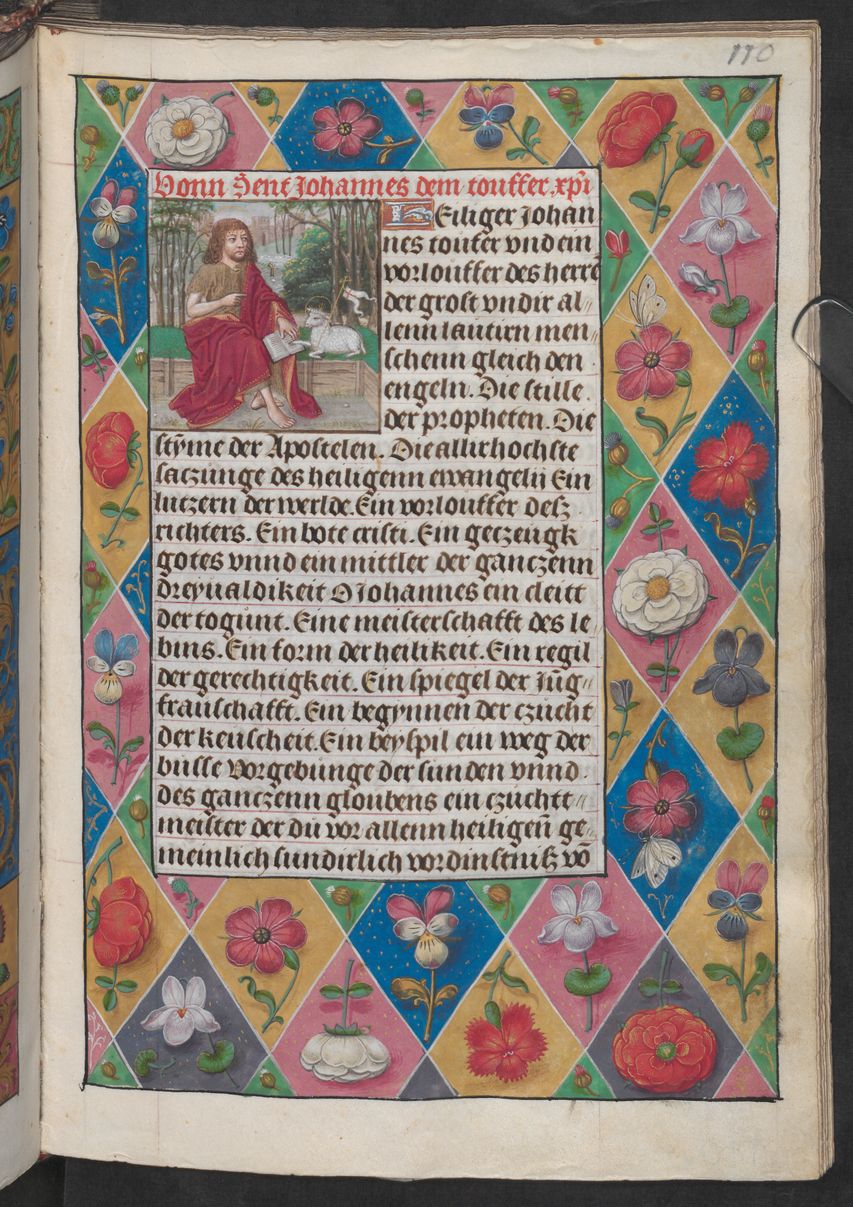 110
Vonn Sent Johannes dem touffer xp̄i
Heiliger Johan
nes toufer vnd ein
vorlouffer des herrē
der grost vn dir al„
lenn lautirn men„
schenn gleich den
engeln. Die stille
der propheten. Die
stÿme der Apostelen. Die allirhochste
saczunge des heiligenn ewangelij Ein
lutzern der werlde. Ein vorlouffer desz
richters. Ein bote cristi. Ein geczeugk
gotes vnnd ein mittler der ganczenn
dreyualdikeit O Johannes ein cleitt
der togunt. Eine meisterschafft des le
bins. Ein form der heilikeit. Ein regil
der gerechtigkeit. Ein spiegel der Jūg„
frauschafft. Ein begynnen der czucht
der keuscheit. Ein beyspil ein weg der
busse Vorgebunge der sunden vnnd.
des ganczenn gloubens ein czuchtt„
meister der du vor allenn heiligen̄ ge„
meinlich sundirlich vordinstniß vō